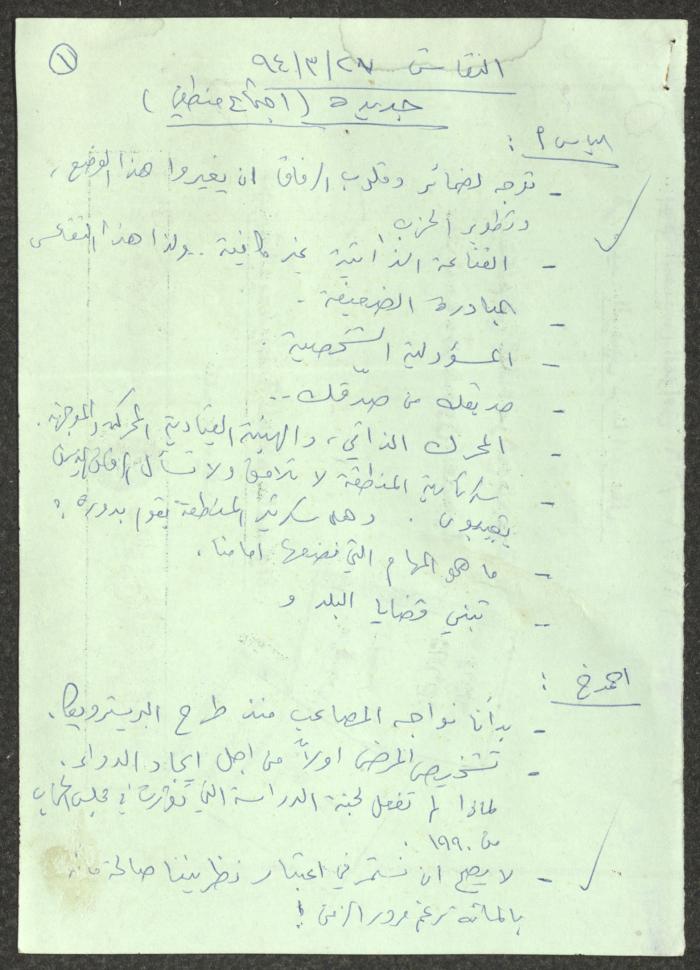 ١
النقاش ٩٤/٣/٢٧
جديدة (اجتماع منطقي)
الياس م :
- توجه لضمائر وقلوب الرفاق ان يغيروا هذا الوضع،
وتطوير الحزب
- القناعة الذاتية غير كافية .. ولذا هذا التقاعس
- المبادرة الضعيفة -
- المسؤولية الشخصية .
- صديقك من صدّقك ..
- المحرك الذاتي، والهيئة القيادية المحركة والموجهة.
- سكرتارية المنطقة لا تلاحق ولا تسأل الرفاق الذين
يتغيبون . وهل سكرتير المنطقة يقوم بدوره ؟
- ما هو المهام التي نضعها امامنا .
- تبني قضايا البلد و
احمد خ :
- بدأنا نواجه المصاعب منذ طرح البريسترويكا .
- تشخيص المرض اولاً من اجل ايجاد الدواء .
لماذا لم تفعل لجنة الدراسة التي في مجلس
من ١٩٩٠ .
- لا يصح ان نستمر في اعتبار نظريتنا صالحة
بالمائة رغم مرور الزمن !